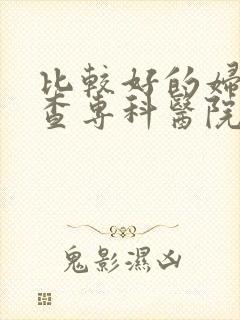 比較好的婦
查專科醫院
鬼影濕凶